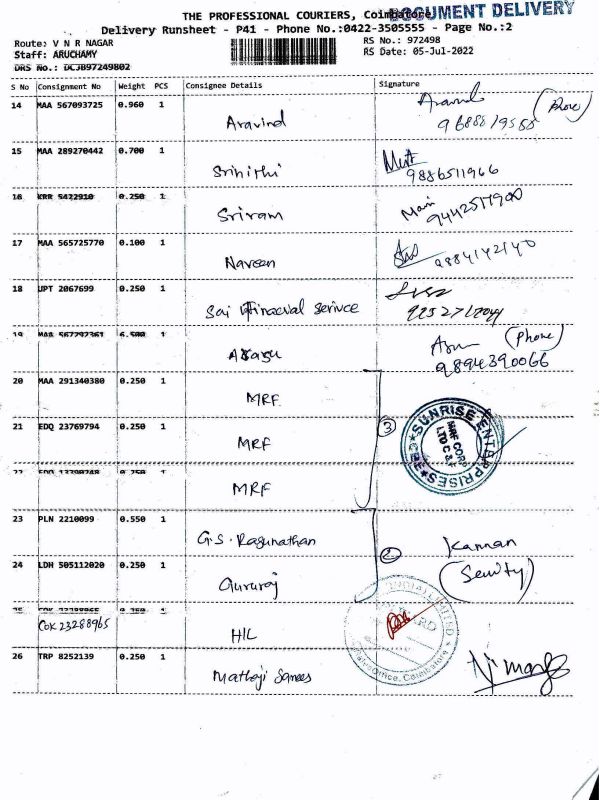 DOCUMENT DELIVERY
THE PROFESSIONAL COURIERS, Coimbatore
Delivery Runsheet - P41 - Phone No.:0422-3505555 - Page No.:2
Route: V N R NAGAR RS No.: 972498
Staff: ARUCHAMY RS Date: 05-Jul-2022
DRS No.: DCJB97249802
S No Consignment No Weight PCS Consignee Details Signature
14 MAA 567093725 0.960 1 Aravind Aravind (Phone)
15 MAA 289270442 0.700 1 Srinithi
9886511966
16 KRR 5422910 0.250 1 Sriram Mani
17 MAA 565725770 0.100 1 Naveen
9884142140
18 JPT 2067699 0.250 1 Sai
19 MAA 567292361 6.500 1 (Phone)
9894390066
20 MAA 291340380 0.250 1 MRF
21 EDQ 23769794 0.250 1 MRF 3
SUNRISE ENTERPRISES CBE
MRF CORP
LTD C & F
22 EDQ 13390248 0.250 1 MRF
23 PLN 2210099 0.550 1 G.S. Ragunathan Kannan
2
24 LDH 505112020 0.250 1 Gururaj
25 COK 23288965 0.250 1
COK 23288965 HIL
LIMITED
Coimbatore
26 TRP 8252139 0.250 1